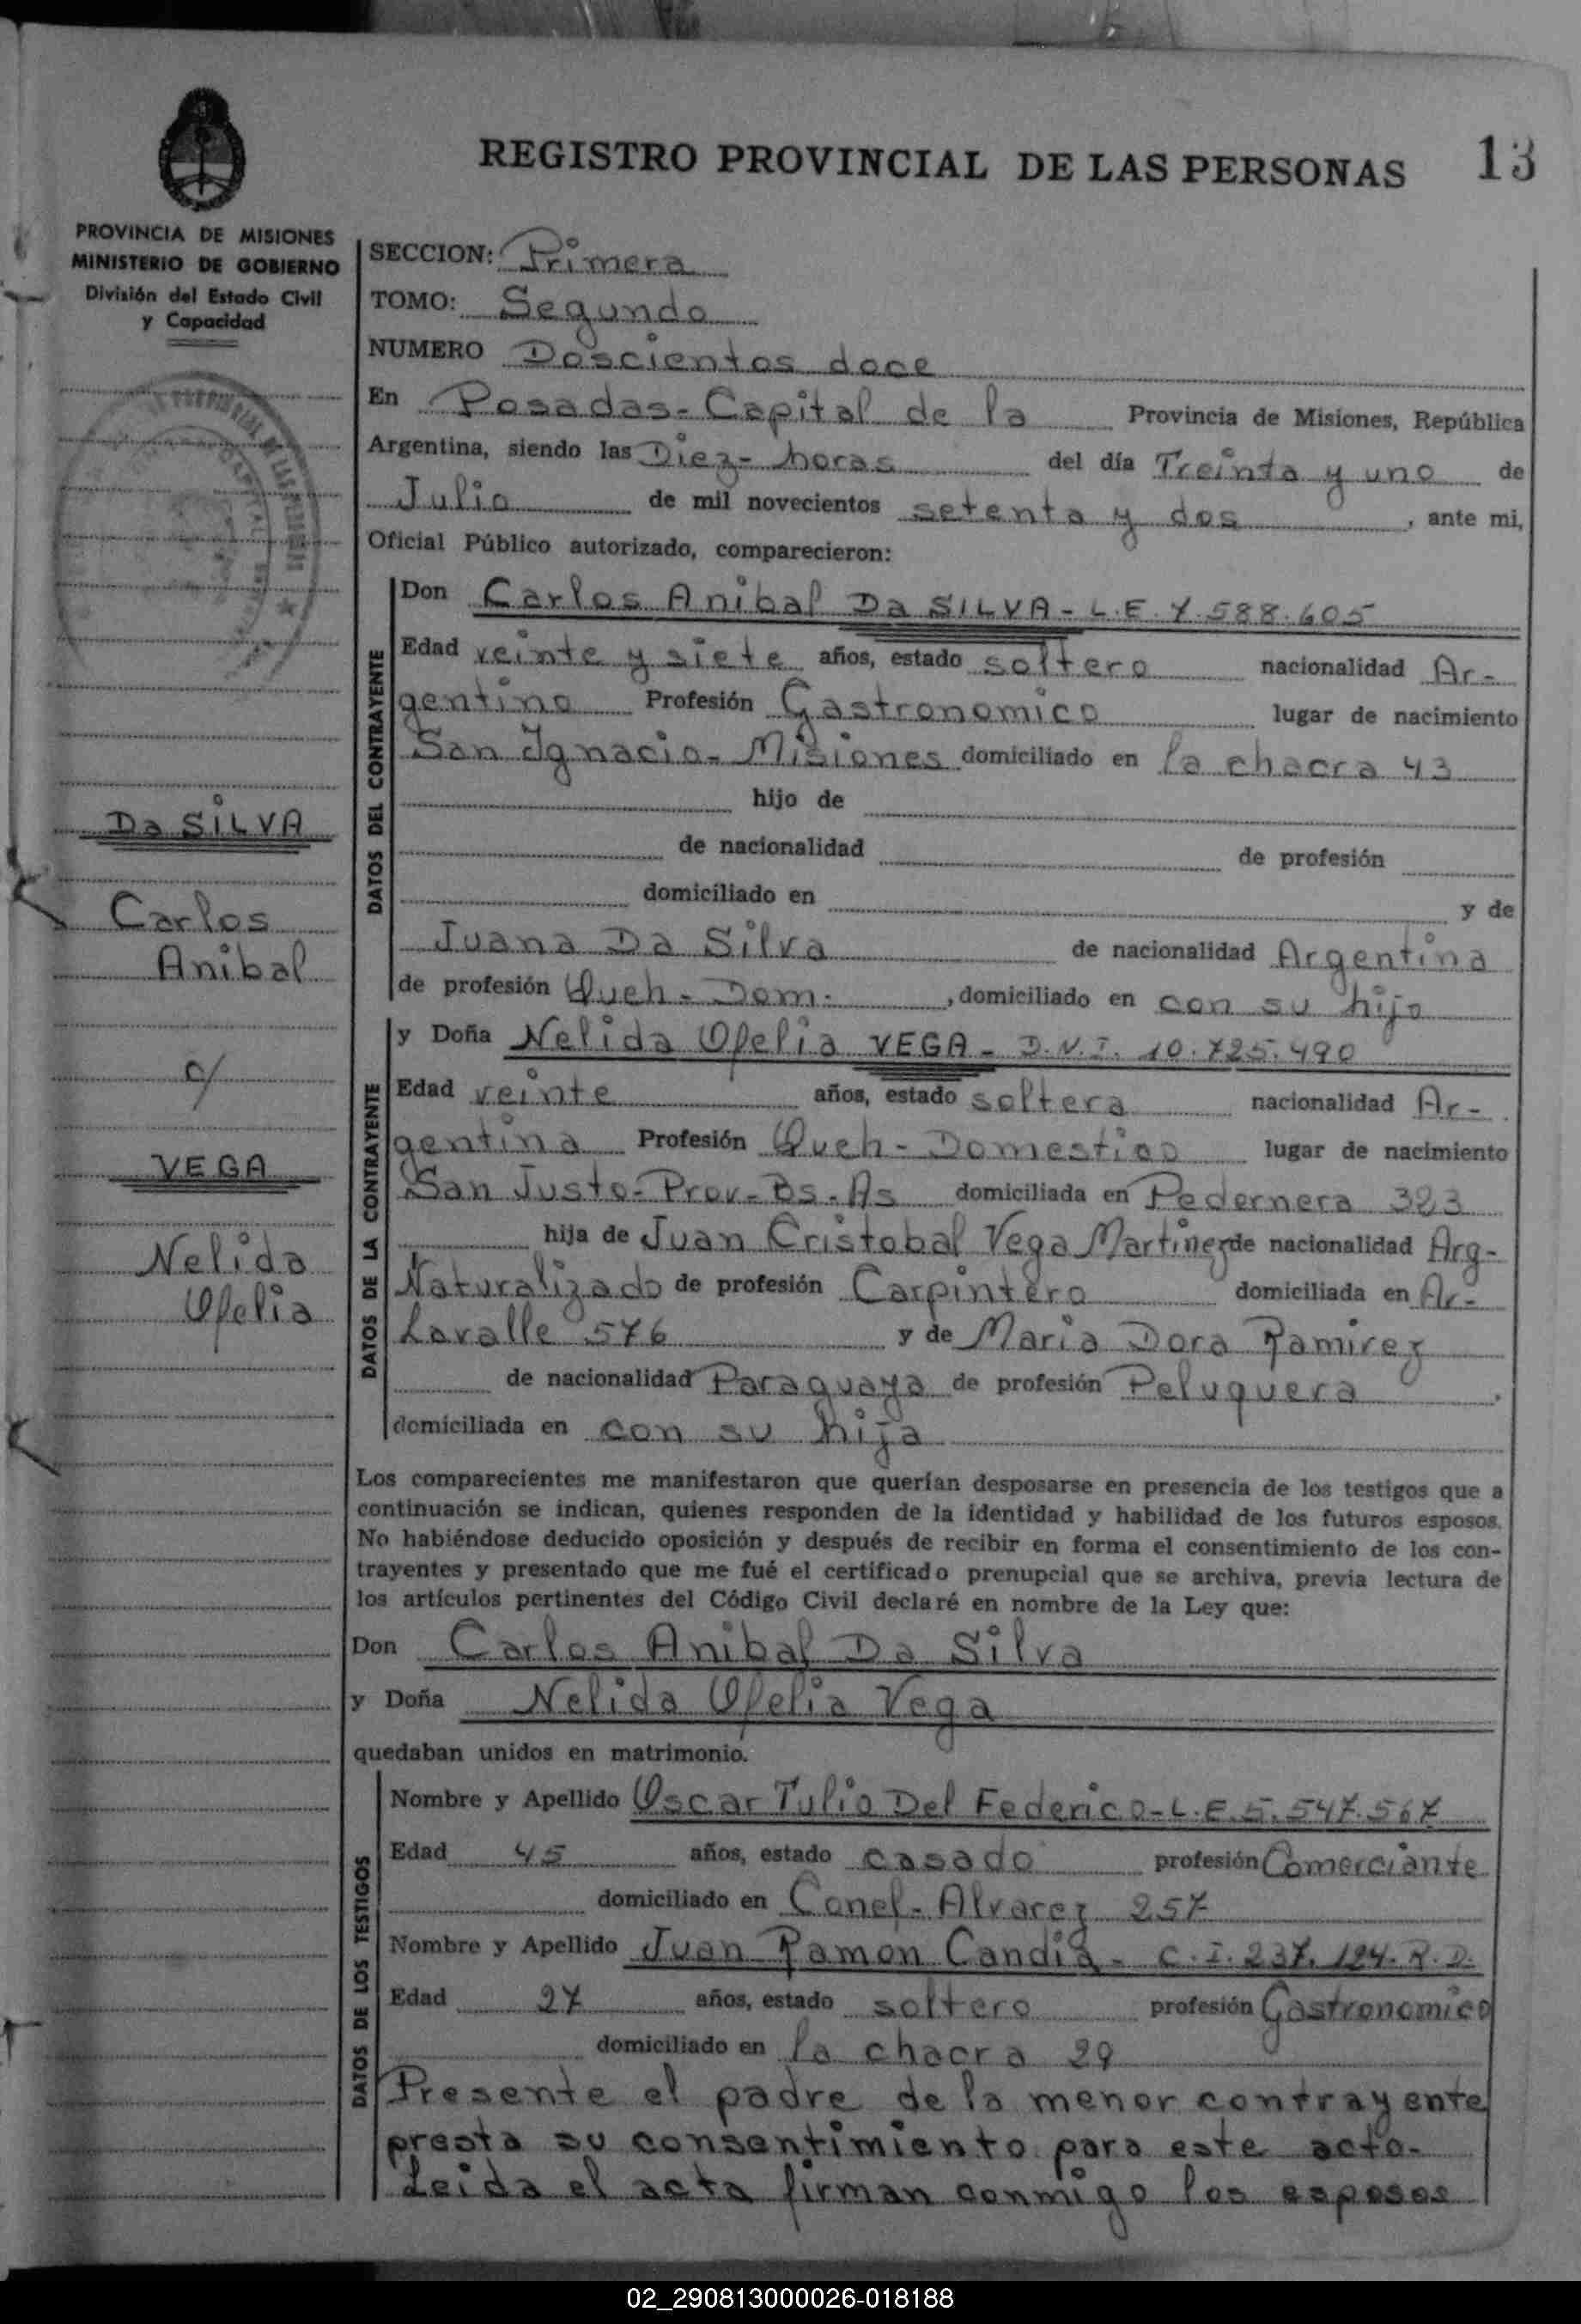 REGISTRO PROVINCIAL DE LAS PERSONAS 13
PROVINCIA DE MISIONES
MINISTERIO DE GOBIERNO
División del Estado Civil
y Capacidad
SECCION: Primera
TOMO: Segundo
NUMERO Doscientos doce
En Posadas- Capital de la Provincia de Misiones, República
Argentina, siendo las Diez- horas del día Treinta y uno de
Julio de mil novecientos setenta y dos, ante mi,
Oficial Público autorizado, comparecieron:
DATOS DEL CONTRAYENTE
Don Carlos Anibal Da SILVA- L.E. 7.588.605
Edad veinte y siete años, estado soltero nacionalidad Ar-
gentino Profesión Gastronomico lugar de nacimiento
San Ignacio- Misiones domiciliado en la chacra 43
hijo de
de nacionalidad de profesión
domiciliado en y de
Juana Da Silva de nacionalidad Argentina
de profesión Queh- Dom. , domiciliado en con su hijo
Da SILVA
Carlos
Anibal
c/
VEGA
Nelida
Ofelia
DATOS DE LA CONTRAYENTE
y Doña Nelida Ofelia VEGA- D.N.I. 10.725.490
Edad veinte años, estado soltera nacionalidad Ar-
gentina Profesión Queh- Domestico lugar de nacimiento
San Justo- Prov- Bs. As domiciliada en Pedernera 323
hija de Juan Cristobal Vega Martinez de nacionalidad Arg-
Naturalizado de profesión Carpintero domiciliada en Ar-
Lavalle 576 y de Maria Dora Ramirez
de nacionalidad Paraguaya de profesión Peluquera,
domiciliada en con su hija
Los comparecientes me manifestaron que querían desposarse en presencia de los testigos que a
continuación se indican, quienes responden de la identidad y habilidad de los futuros esposos.
No habiéndose deducido oposición y después de recibir en forma el consentimiento de los con-
trayentes y presentado que me fué el certificado prenupcial que se archiva, previa lectura de
los artículos pertinentes del Código Civil declaré en nombre de la Ley que:
Don Carlos Anibal Da Silva
y Doña Nelida Ofelia Vega
quedaban unidos en matrimonio.
DATOS DE LOS TESTIGOS
Nombre y Apellido Oscar Tulio Del Federico- L.E. 5.547.567
Edad 45 años, estado casado profesión Comerciante
domiciliado en Conel- Alvarez 257
Nombre y Apellido Juan Ramon Candia- C.I. 237.124. R.D.
Edad 27 años, estado soltero profesión Gastronomico
domiciliado en la chacra 29
Presente el padre de la menor contrayente
presta su consentimiento para este acto-
Leida el acta firman conmigo los esposos
02_290813000026-018188